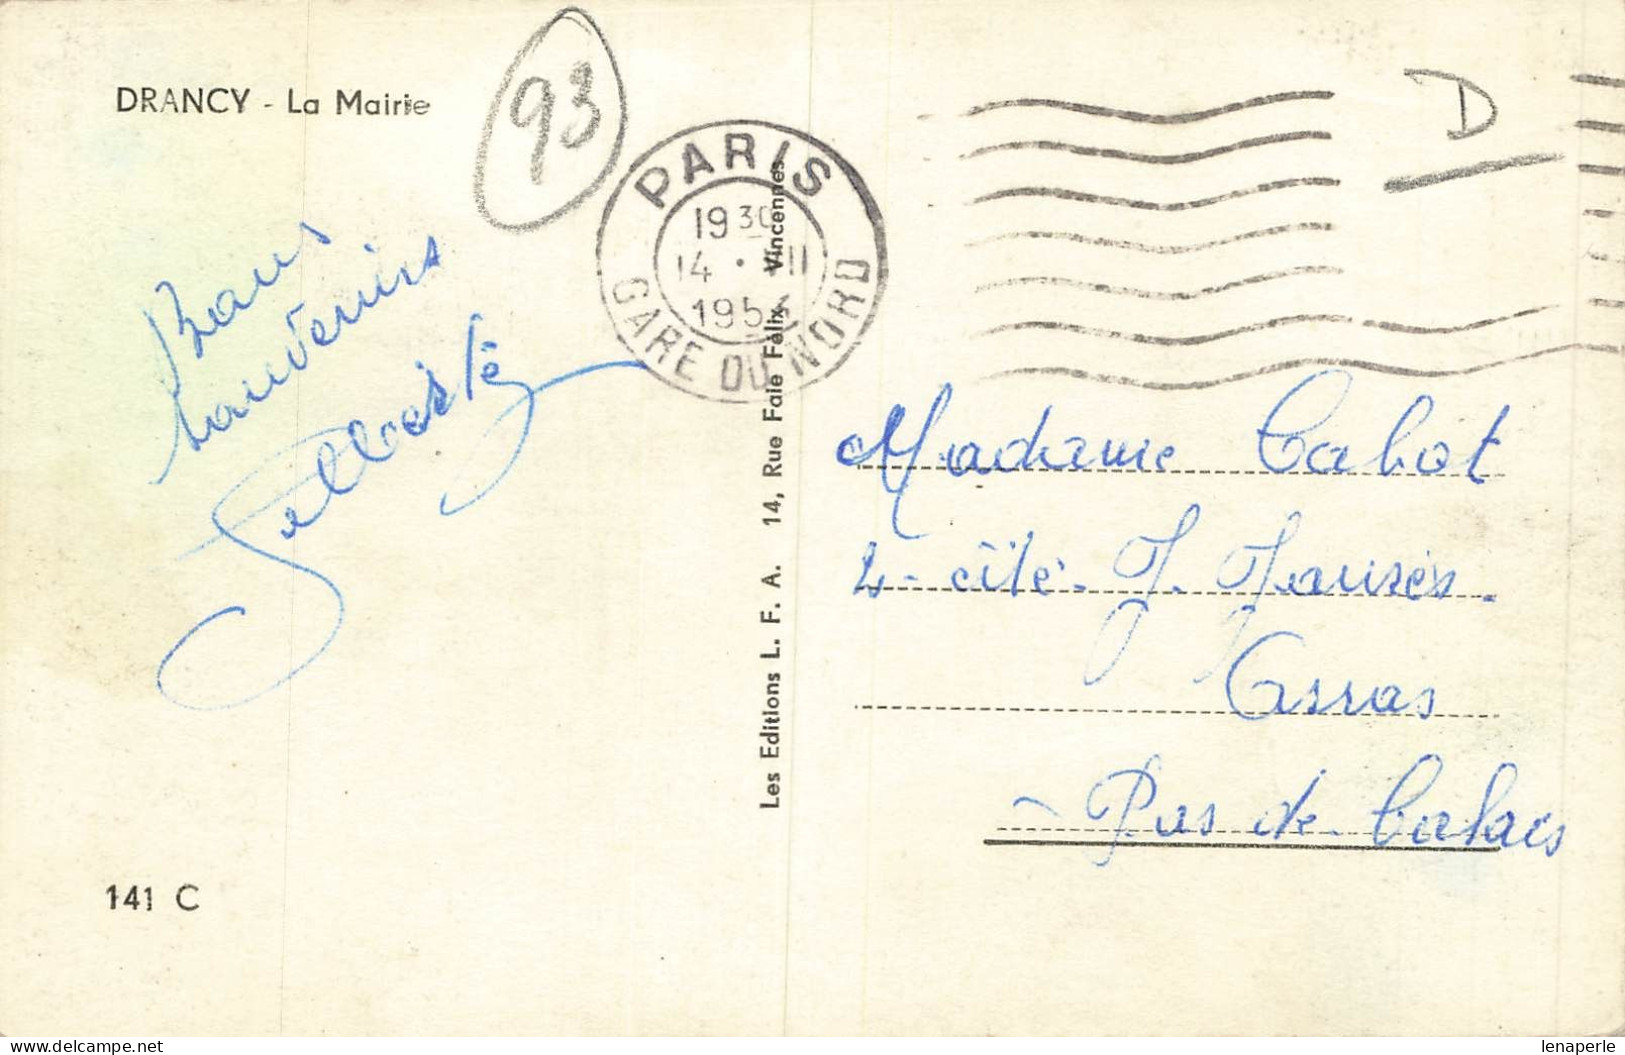 DRANCY - La Mairie
93
D
PARIS
19 30
14 · II
195
GARE DU NORD
Bons
souvenirs
Les Editions L. F. A. 14, Rue Faie Félix Vincennes
Madame Cabot
2 - cité - J. Jaurès.
Arras
- Pas de Calais
141 C
delcampe.net
lenaperle